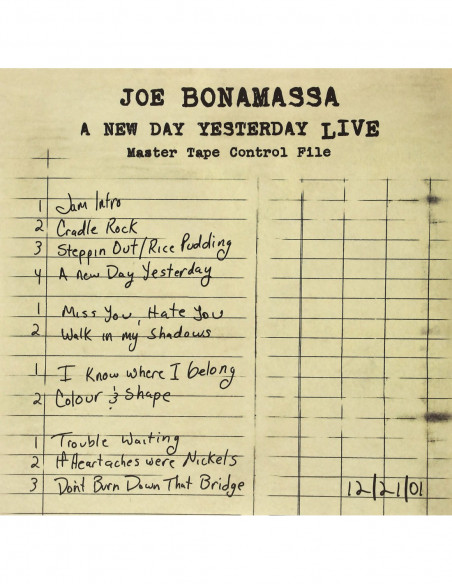 JOE BONAMASSA
A NEW DAY YESTERDAY LIVE
Master Tape Control File
1 Jam Intro
2 Cradle Rock
3 Steppin Out/Rice Pudding
4 A new Day Yesterday
1 Miss You, Hate You
2 Walk in my Shadows
1 I Know where I belong
2 Colour & Shape
1 Trouble Waiting
2 If Heartaches were Nickels
3 Don't Burn Down That Bridge
12/21/01